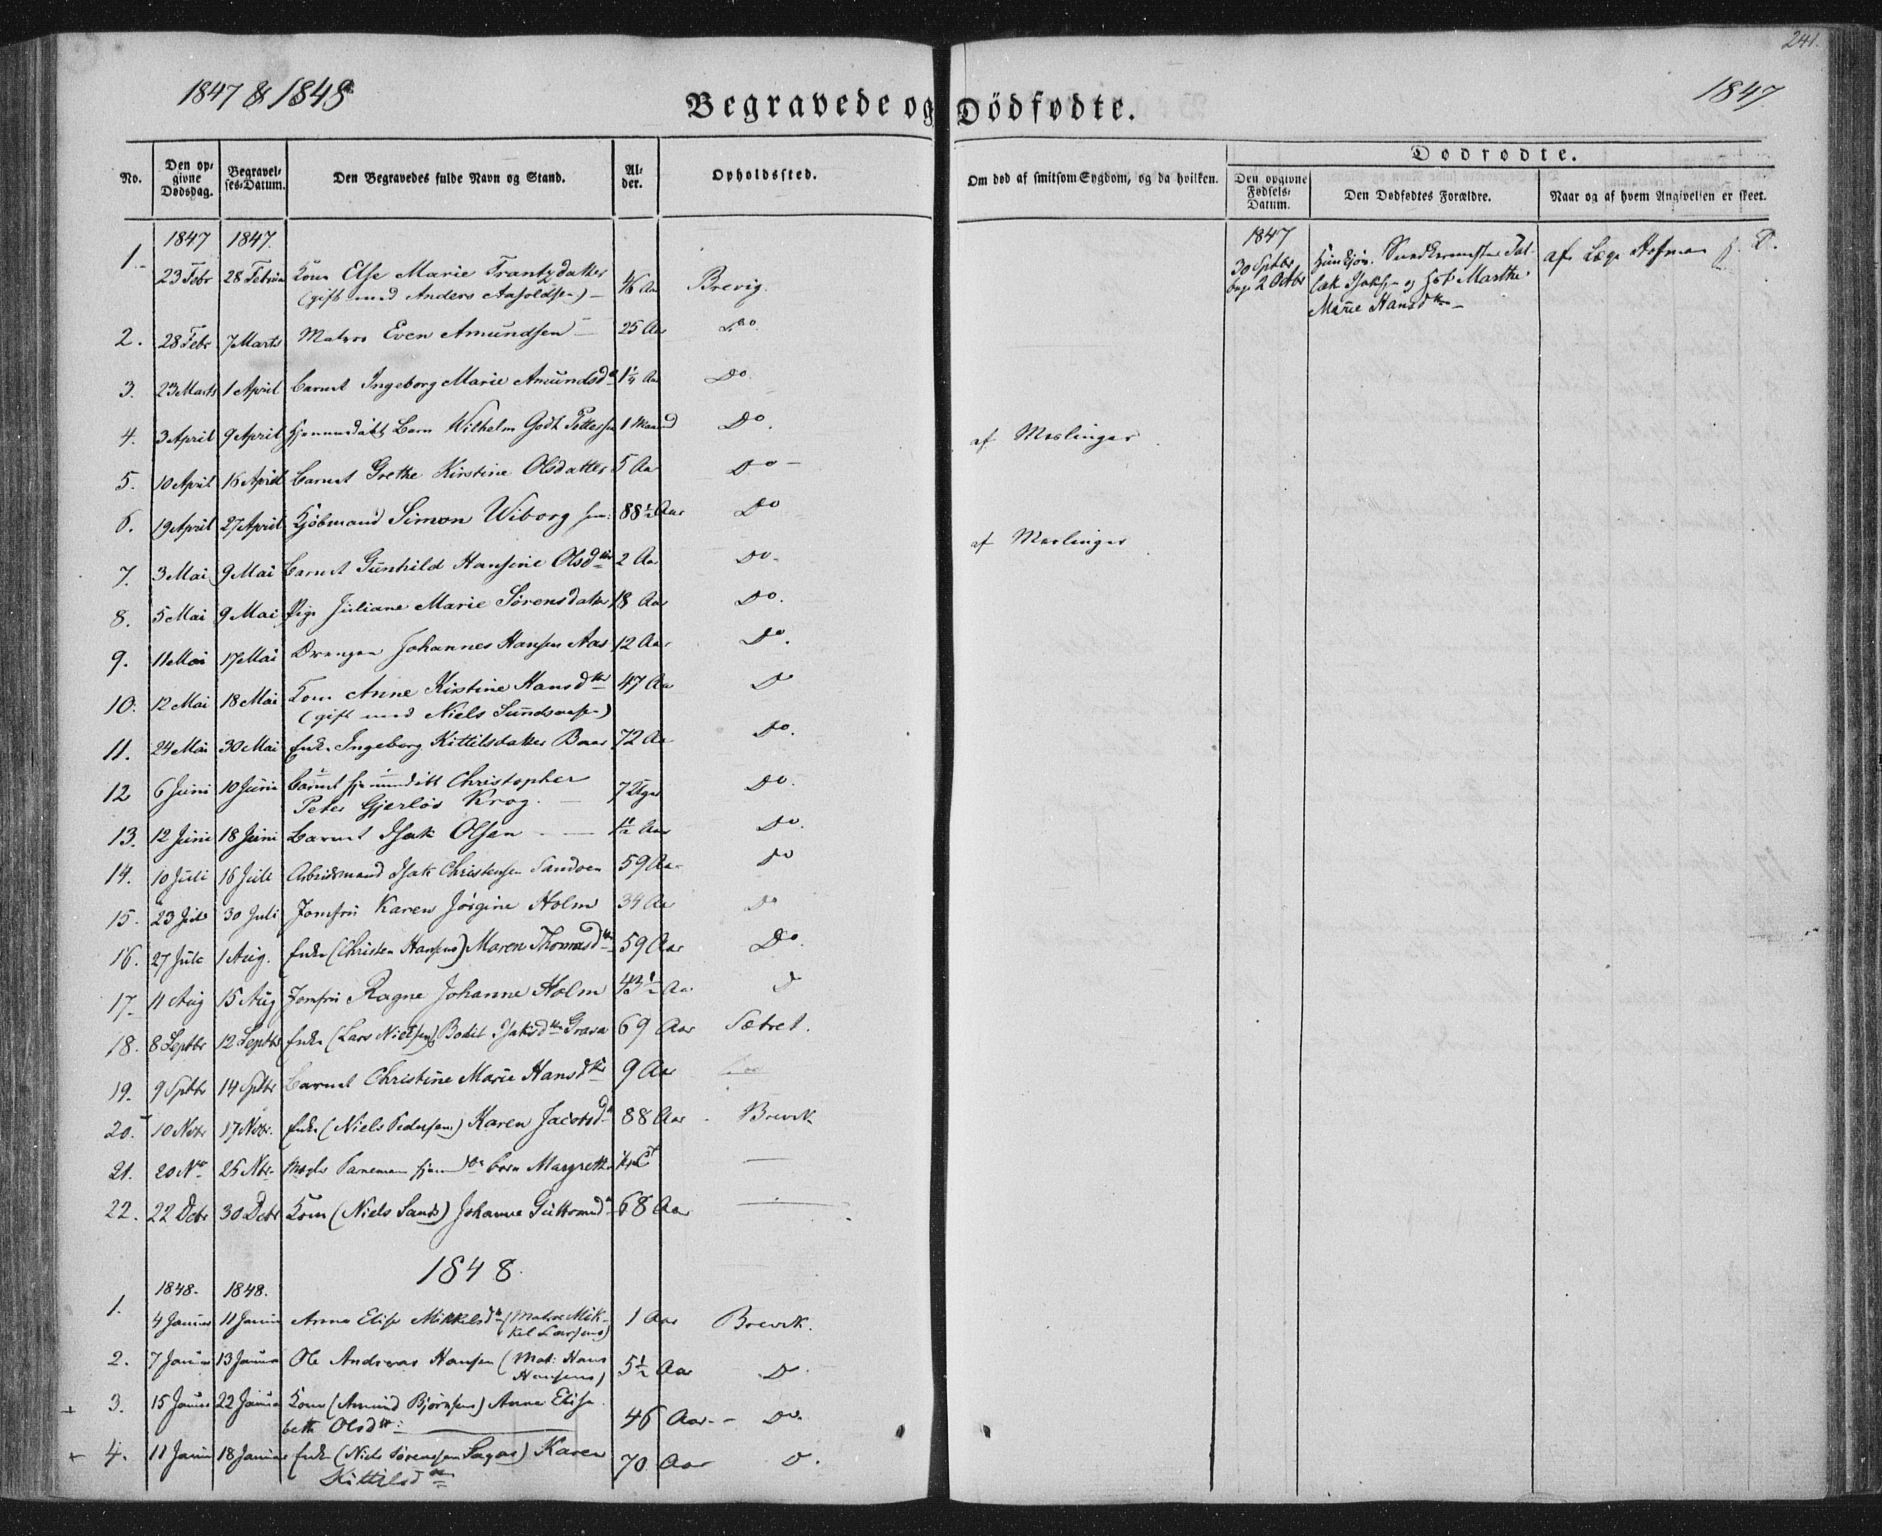 241.
1847 & 1848
1847
Begravede og Dödfødte.
No. Den opgivne Dødsdag. Begravelses-Datum. Den Begravedes fulde Navn og Stand. Alder. Opholdssted. Om død af smitsom Sygdom, og da hvilken.
Dødfødte.
Den opgivne Fødsels-Datum. Den Dødfødtes Forældre. Naar og af hvem Angivelsen er skeet.
1847 1847.
1. 23 Febr 28 Februar Kone Else Marie Frantzdatter
(gift med Anders Aasoldsen) Aar Brevig.
2. 28 Febr 7 Marts Matros Even Amundsen 25 Aar Do
3. 23 Marts 1 April Barnet Ingeborg Marie Amundsdtr 1¼ Aar Do
4. 3 April 9 April hjemmedøbt Barn Wilhelm Godt Pettersen 1 Maaned Do. af Meslinger
5. 10 April 16 April Barnet Grethe Kirstine Olsdatter 5 Aar Do
6. 19 April 27 April Kjöbmand Simon Wiborg sen: 88½ Aar Do af Meslinger
7. 3 Mai 9 Mai Barnet Gunhild Hansine Olsdtr 2 Aar Do.
8. 5 Mai 9 Mai Pige Juliane Marie Sörensdatter 18 Aar Do.
9. 11 Mai 17 Mai Drengen Johannes Hansen Aas 12 Aar Do.
10. 12 Mai 18 Mai Kone Anne Kirstine Hansdtr 47 Aar D
(gift med Niels)
11. 24 Mai 30 Mai Enke Ingeborg Kittilsdatter 72 Aar Do.
12 6 Juni 10 Juni Barnet hjemmedöbt Christopher
Peter Gjerløs Krog. 7 Uger Do.
13. 12 Juni 18 Juni Barnet Isak Olsen 1½ Aar Do.
14. 10 Juli 16 Juli Arbeidsmand Isak Christensen Sandøen 59 Aar Do
15. 23 Juli 30 Juli Jomfru Karen Jörgine Holm 34 Aar Do
16. 27 Juli 1 Aug. Enke (Christen Hansens) Maren Thomasdtr 59 Aar Do.
17. 11 Aug 15 Aug Jomfru Ragne Johanne Holm 43½ Aar D
18. 8 Septbr 12 Septbr Enke (Lars Nielsen) Bodil Isaksdtr Grava 69 Aar Sætret.
19. 9 Sptbr 14 Sptbr Barnet Christine Marie Hansdtr 9 Aar Do
20. 10 Novbr 17 Novbr. Enke (Niels Pedersens) Karen Jacobsdtr 88 Aar Brevik
21. 20 Nbr 25 Nbr. hjemmedbt barn Margrethe
22. 22 Debr 30 Debr Kone (Niels Sands) Johanne Guttormsdtr 68 Aar
1848.
1848. 1848.
1. 4 Januar 11 Januar Anne Elise Mikkelsdtr (Matros Mik-
kel Larsens) 1 Aar Brevik.
2. 7 Januar 13 Januar Ole Andreas Hansen (Mat: Hans
Hansens) 5½ Aar D
3. 15 Januar 22 Januar Kone (Amund Björnsens) Anne Elisa-
beth Olsdtr: 46 Aar Do.
4. 11 Januar 18 Januar Enke (Niels Sörensen Sagas) Karen
Kittilsdtr 70 Aar D.
1847
30 Septbr
begr 2 Octbr
Tal-
lak Isaksen og Hst. Marthe
Marie Hansdtr
af Læge Hofman